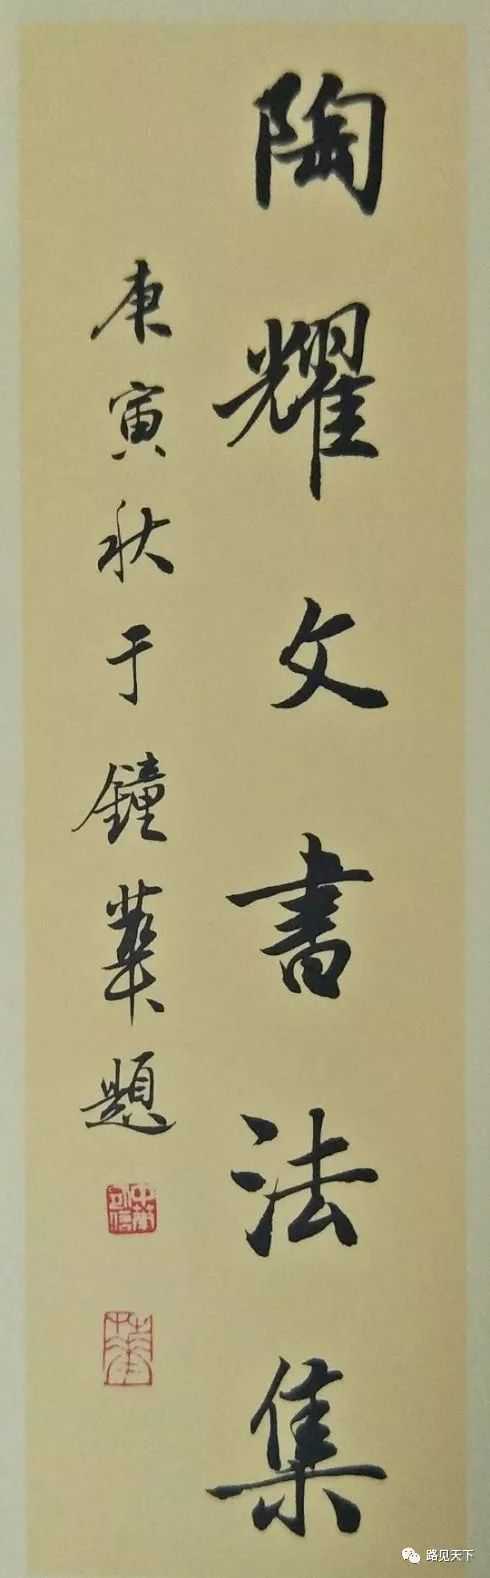 陶耀文書法集
庚寅秋于鐘華題
路见天下